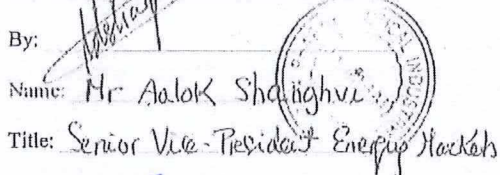 By:
Name: Mr Aalok Shanghvi
Title: Senior Vice-President Energy Markets